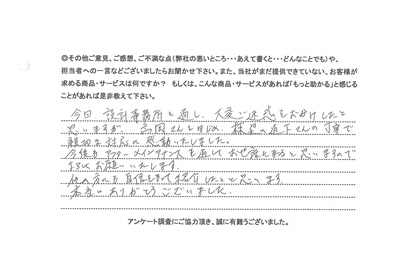 ◎その他ご意見、ご感想、ご不満な点（弊社の悪いところ・・・あえて書くと・・・どんなことでも）や、
担当者への一言などございましたらお聞かせ下さい。また、当社がまだ提供できていない、お客様が
求める商品・サービスは何ですか？ もしくは、こんな商品・サービスがあれば「もっと助かる」と感じる
ことがあれば是非教えて下さい。
今回、設計事務所を通し、大変ご迷惑をおかけしたと
思いますが、高岡さんをはじめ、 の さんの丁寧で
親切な対応に感動いたしました。
今後もアフターメインテナンスを通してお世話になると思いますので
よろしくお願いいたします。
他の方にも自信をもって紹介したいと思います
本当にありがとうございました。
アンケート調査にご協力頂き、誠に有難うございました。